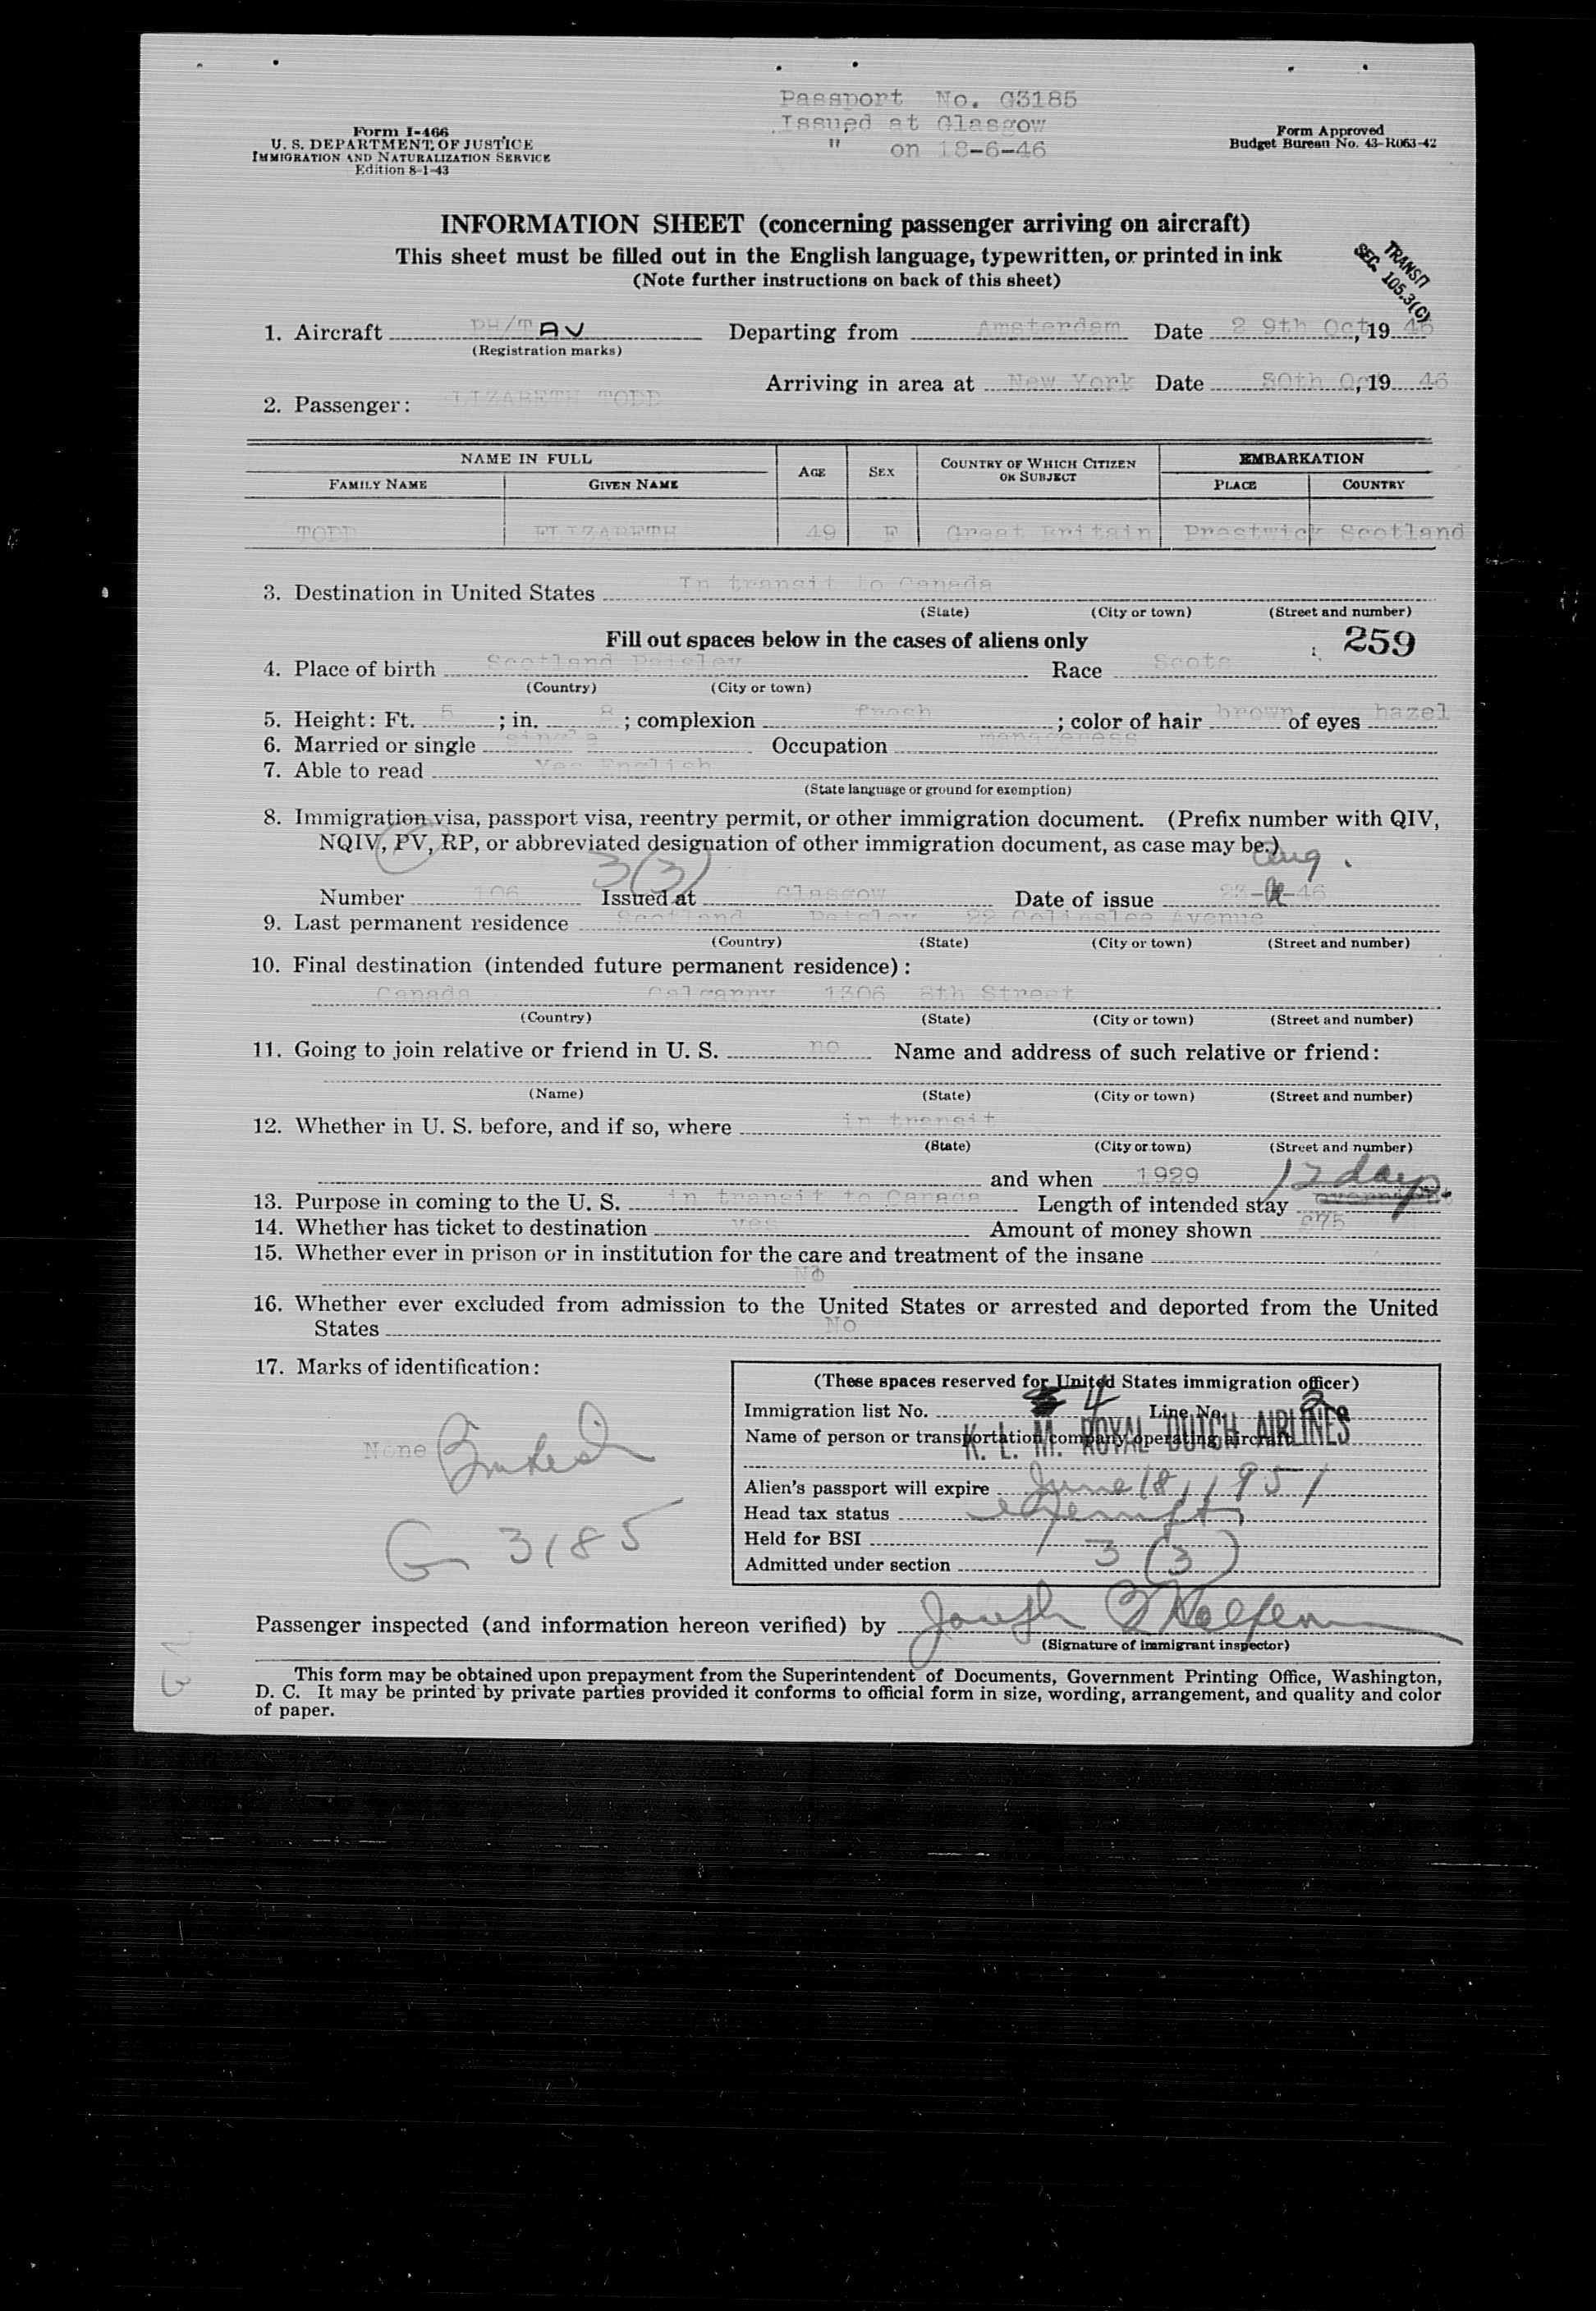 Passport No. G3185
Issued at Glasgow
" on 18-6-46
Form I-466
U. S. DEPARTMENT OF JUSTICE
IMMIGRATION AND NATURALIZATION SERVICE
Edition 8-1-43
Form Approved
Budget Bureau No. 43-R063-42
INFORMATION SHEET (concerning passenger arriving on aircraft)
This sheet must be filled out in the English language, typewritten, or printed in ink
(Note further instructions on back of this sheet)
TRANSIT
SEC. 105.3(C)
1. Aircraft PH/TAV Departing from Amsterdam Date 29th Oct, 1946
(Registration marks)
Arriving in area at New York Date 30th Oct, 19 46
2. Passenger: ELIZABETH TODD
NAME IN FULL AGE SEX COUNTRY OF WHICH CITIZEN OR SUBJECT EMBARKATION
FAMILY NAME GIVEN NAME PLACE COUNTRY
TODD ELIZABETH 49 F Great Britain Prestwick Scotland
3. Destination in United States In transit to Canada
(State) (City or town) (Street and number)
Fill out spaces below in the cases of aliens only 259
4. Place of birth Scotland Paisley Race Scots
(Country) (City or town)
5. Height: Ft. 5; in. 8; complexion fresh; color of hair brown of eyes hazel
6. Married or single single Occupation manageress
7. Able to read Yes English
(State language or ground for exemption)
8. Immigration visa, passport visa, reentry permit, or other immigration document. (Prefix number with QIV,
NQIV, PV, RP, or abbreviated designation of other immigration document, as case may be.)
3(3) Aug.
Number 106 Issued at Glasgow Date of issue 23- -46
9. Last permanent residence Scotland Paisley 22 Colinslee Avenue
(Country) (State) (City or town) (Street and number)
10. Final destination (intended future permanent residence):
Canada Calgarry 1306 8th Street
(Country) (State) (City or town) (Street and number)
11. Going to join relative or friend in U. S. no Name and address of such relative or friend:
(Name) (State) (City or town) (Street and number)
12. Whether in U. S. before, and if so, where in transit
(State) (City or town) (Street and number)
and when 1929
12 days
13. Purpose in coming to the U. S. in transit to Canada Length of intended stay
14. Whether has ticket to destination yes Amount of money shown 75
15. Whether ever in prison or in institution for the care and treatment of the insane
No
16. Whether ever excluded from admission to the United States or arrested and deported from the United
States No
17. Marks of identification:
None British
G 3185
(These spaces reserved for United States immigration officer)
Immigration list No. 4 Line No. 2
Name of person or transportation company operating aircraft
K. L. M. ROYAL DUTCH AIRLINES
Alien's passport will expire June 18, 1951
Head tax status exempt
Held for BSI
Admitted under section 3 (3)
Passenger inspected (and information hereon verified) by Joseph
(Signature of immigrant inspector)
This form may be obtained upon prepayment from the Superintendent of Documents, Government Printing Office, Washington,
D. C. It may be printed by private parties provided it conforms to official form in size, wording, arrangement, and quality and color
of paper.